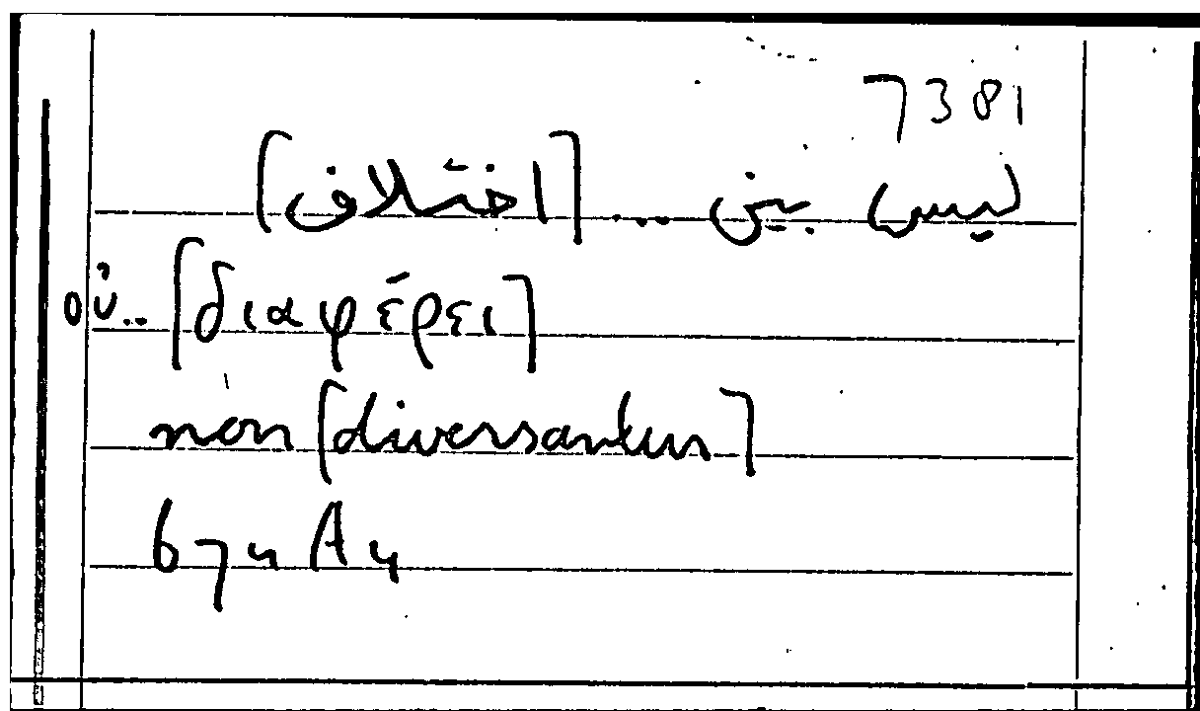 7381
ليس بين ... [اختلاف]
οὐ.. [διαφέρει]
non [diversantur]
674 A4